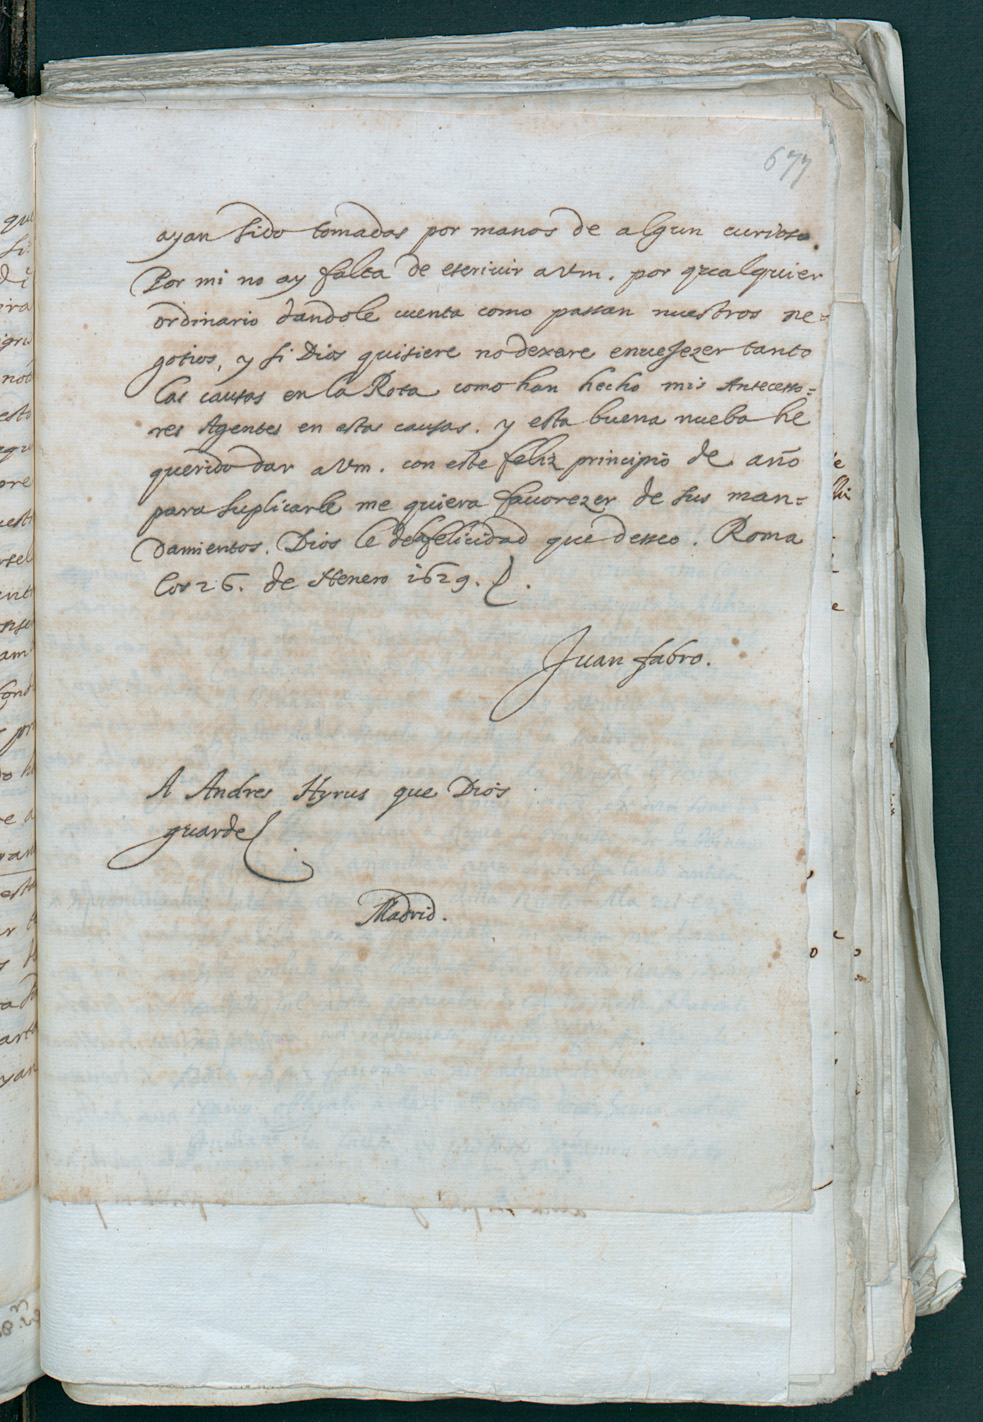 677
ayan sido tomadas por manos de algun curioso.
Por mi no ay falta de escriuir a Vm. por qualquier
ordinario dandole cuenta como passan nuestros ne=
gotios, y si Dios quisiere no dexare enuejezer tanto
las causas en la Rota como han hecho mis Antecesso=
res Agentes en estas causas. y esta buena nueba he
querido dar a Vm. con este feliz principio de año
para suplicarle me quiera fauorezer de sus man=
damientos. Dios le de la felicidad que desseo. Roma
los 26. de Henero 1629.
Juan fabro.
A Andres Hyrus que Dios
guarde
Madrid.